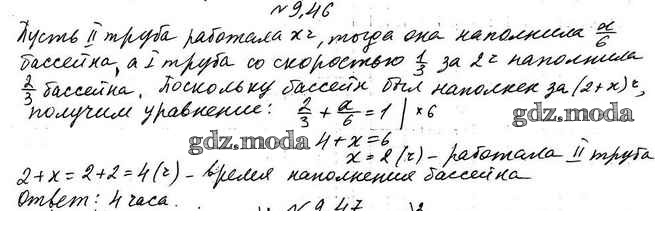 №9,46
Пусть II труба работала x г, тогда она наполнила x/6
бассейна, а I труба со скоростью 1/3 за 2г наполнила
2/3 бассейна. Поскольку бассейн был наполнен за (2+x)г,
получим уравнение: 2/3 + x/6 = 1 | ×6
gdz.moda
gdz.moda
4+x=6
x=2(г) – работала II труба
2+x=2+2=4(г) – время наполнения бассейна
gdz.moda
Ответ: 4 часа.
№9.47